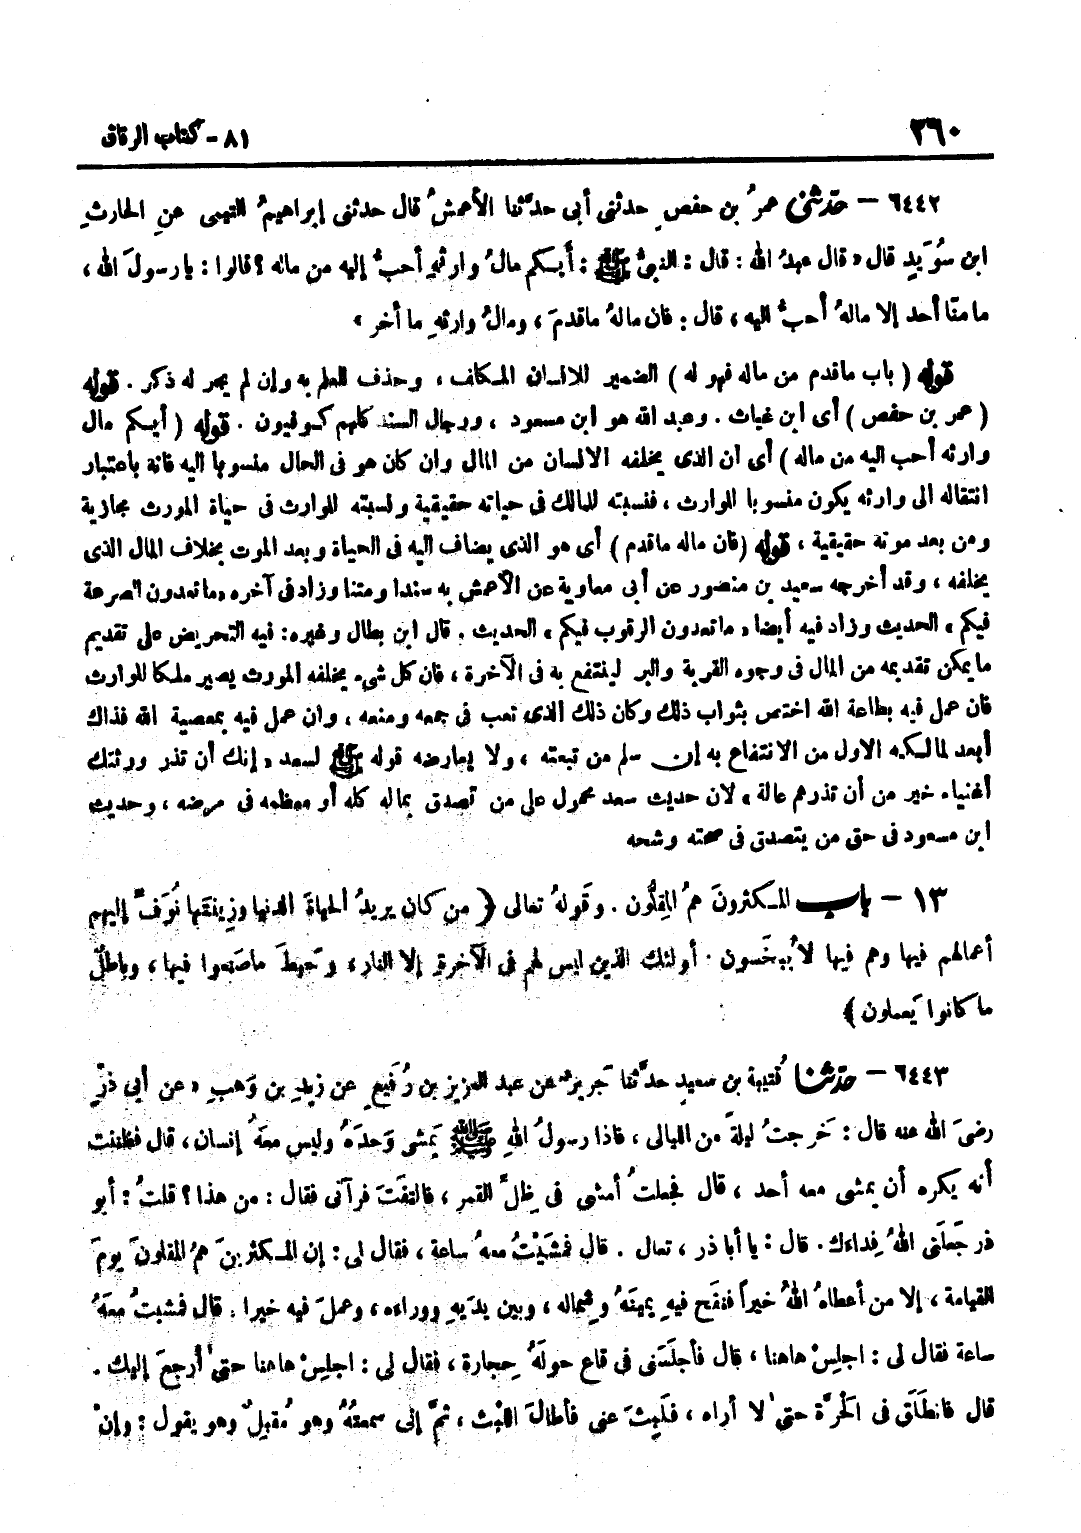 ٢٦٠
٨١ - كتاب الرقاق
٦٤٤٢ - حدّثنى عمرُ بن حفصٍ حدثنى أبى حدَّثنا الأعمشُ قال حدثنى إبراهيمُ التيمى عنِ الحارثِ
ابن سُوَيدٍ قال « قال عبدُ الله : قال : النبىُّ ﷺ : أَيكم مالُ وارثهِ أحبُّ إليه من ماله ؟ قالوا : يا رسولَ الله ،
ما منّا أحد إلا مالهُ أحبُّ اليه ، قال : فان مالهُ ما قدمَ ، ومالُ وارثهِ ما أخر »
قوله ( باب ما قدم من ماله فهو له ) الضمير للانسان المكلف ، وحذف للعلم به وإن لم يجر له ذكر . قوله
( عمر بن حفص ) أى ابن غياث . وعبد الله هو ابن مسعود ، ورجال السند كلهم كوفيون . قوله ( أيكم مال
وارثه أحب اليه من ماله ) أى أن الذى يخلفه الانسان من المال وان كان هو فى الحال منسوبا اليه فانه باعتبار
انتقاله الى وارثه يكون منسوبا للوارث ، فنسبته للمالك فى حياته حقيقية ونسبته للوارث فى حياة المورث مجازية
ومن بعد موته حقيقية ، قوله ( فان ماله ما قدم ) أى هو الذى يضاف اليه فى الحياة وبعد الموت بخلاف المال الذى
يخلفه ، وقد أخرجه سعيد بن منصور عن أبى معاوية عن الأعمش به سندا ومتنا وزاد فى آخره « ما تعدون الصرعة
فيكم » الحديث وزاد فيه أيضا « ما تعدون الرقوب فيكم » الحديث . قال ابن بطال وغيره : فيه التحريض على تقديم
ما يمكن تقديمه من المال فى وجوه القربة والبر لينتفع به فى الآخرة ، فان كل شىء يخلفه المورث يصير ملكا للوارث
فان عمل فيه بطاعة الله اختص بثواب ذلك وكان ذلك الذى تعب فى جمعه ومنعه ، وان عمل فيه بمعصية الله فذاك
أبعد لمالكه الاول من الانتفاع به إن سلم من تبعته ، ولا يعارضه قوله ﷺ لسعد « إنك أن تذر ورثتك
أغنياء خير من أن تذرهم عالة » لان حديث سعد محمول على من تصدق بماله كله أو معظمه فى مرضه ، وحديث
ابن مسعود فى حق من يتصدق فى صحته وشحه
١٣ - باب المكثرونَ همُ المقِلُّون . وقَولهُ تعالى ﴿ من كان يريدُ الحياةَ الدنيا وزِينتَها نُوَفِّ إليهم
أعمالهم فيها وهم فيها لا يُبخَسون . أولئك الذين ليس لهم فى الآخرةِ إلا النار ، وحَبِطَ ما صنَعوا فيها ، وباطلٌ
ما كانوا يَعملون ﴾
٦٤٤٣ - حدّثنا قُتيبة بن سعيد حدَّثنا جَريرٌ عن عبد العزيز بن رُفَيعٍ عن زيدِ بن وَهبٍ « عن أبى ذرٍّ
رضىَ الله عنه قال : خَرجتُ ليلةً من الليالى ، فاذا رسولُ اللهِ ﷺ يَمشى وَحدَهُ وليس معهُ إنسان ، قال فظننت
أنه يكره أن يمشى معه أحد ، قال فجعلتُ أمشى فى ظِلِّ القمر ، فالتفَتَ فرآنى فقال : من هذا ؟ قلتُ : أبو
ذر جَعلَنى اللهُ فِداءَك . قال : يا أبا ذر ، تعال . قال فمَشَيْتُ معهُ ساعة ، فقال لى : إن المكثرينَ همُ المقلونَ يومَ
القيامة ، إلا من أعطاهُ اللهُ خيراً فنفَح فيهِ يمينَهُ وشِماله ، وبين يدَيهِ ووراءه ، وعملَ فيه خيرا . قال فمشيتُ معَهُ
ساعة فقال لى : اجلِسْ هاهنا ، قال فأجلَسَنى فى قاع حولَهُ حِجارة ، فقال لى : اجلِسْ هاهنا حتى أرجعَ إليك .
قال فانطَلَق فى الحرَّة حتى لا أراه ، فلَبِثَ عنى فأطالَ اللبْث ، ثمَّ إنى سمعتُهُ وهو مُقبلٌ وهو يقول : وإنْ